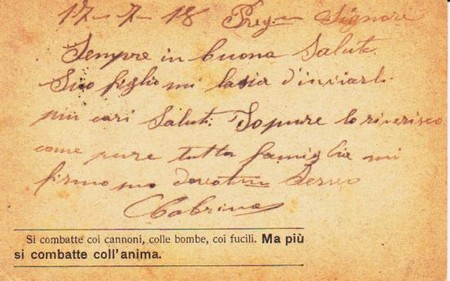 17-7-18 Preg. Signore
Sempre in buona Salute.
Suo figlio mi lascia d'inviarli
più cari Saluti. Io pure lo riverisco
come pure tutta famiglia mi
firmo suo devotmo Servo
Cabrina
Si combatte coi cannoni, colle bombe, coi fucili. Ma più
si combatte coll'anima.